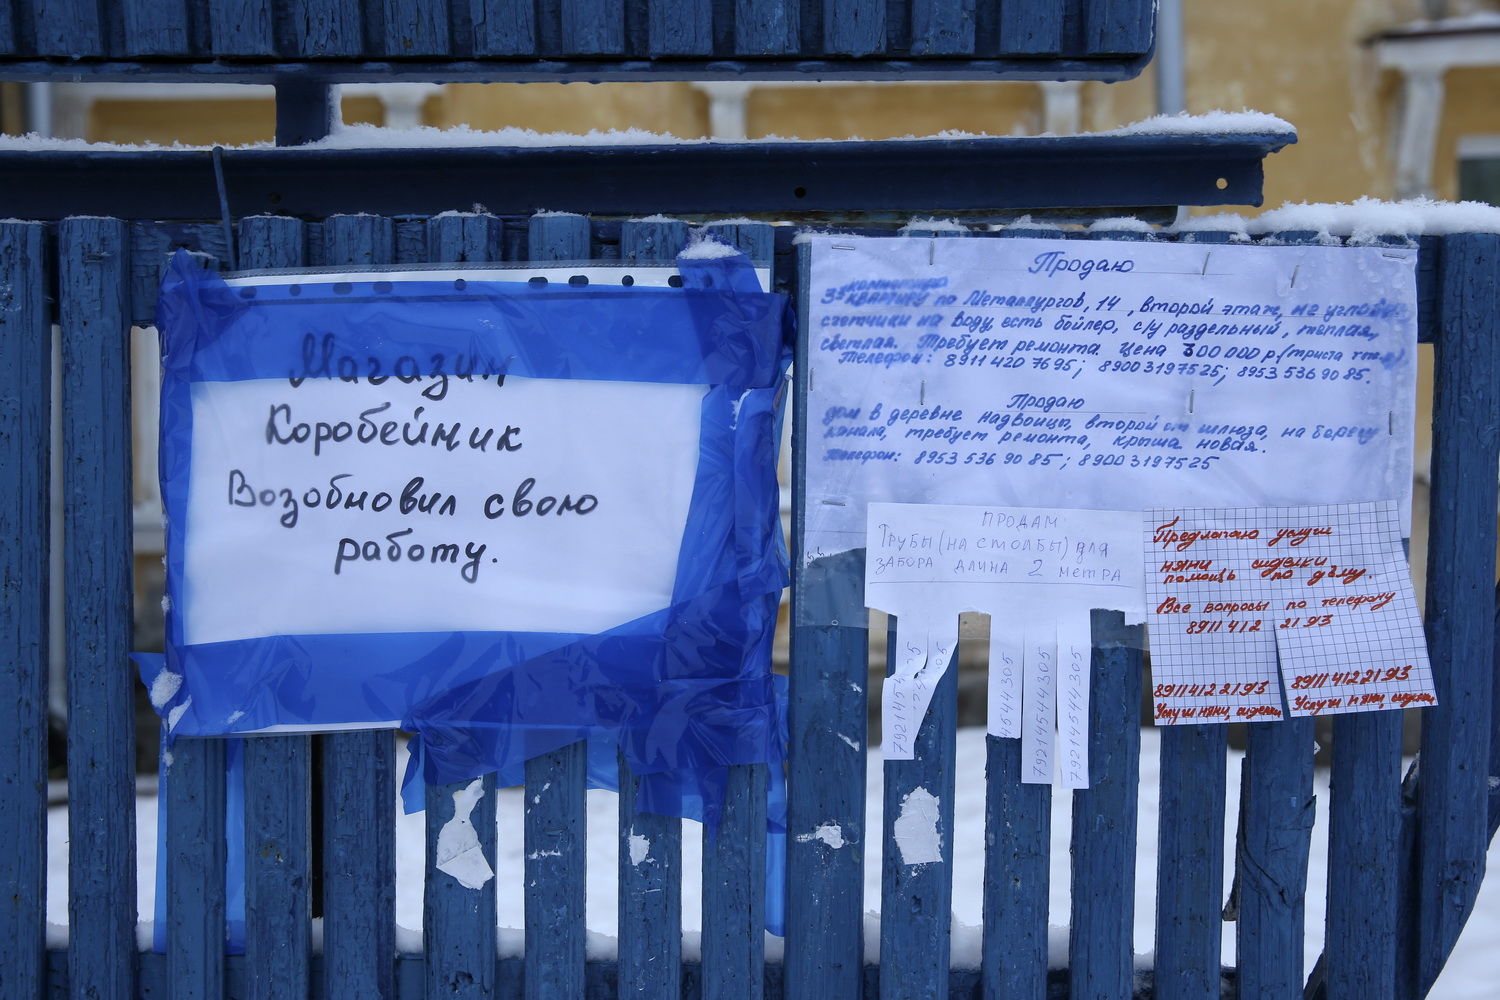 Магазин
Коробейник
Возобновил свою
работу.
Продаю
3х комнатную
квартиру по Металлургов, 14, второй этаж, не угловая
счетчики на воду, есть бойлер, с/у раздельный, тёплая,
светлая. Требует ремонта. Цена 300 000 р. (триста тыс.)
Телефон: 8911 420 76 95; 8900 319 75 25; 8953 536 90 85.
Продаю
дом в деревне Надвоицы, второй от шлюза, на берегу
канала, требует ремонта, крыша новая.
Телефон: 8953 536 90 85; 8900 319 75 25
ПРОДАМ
ТРУБЫ (НА СТОЛБЫ) для
ЗАБОРА ДЛИНА 2 МЕТРА
4544305
79214544305
79214544305
Предлагаю услуги
няни сиделки
помощь по д/му.
Все вопросы по телефону
8911 412 21 93
89114122193
Услуги няни, сиделки
89114122193
Услуги няни, сиделки